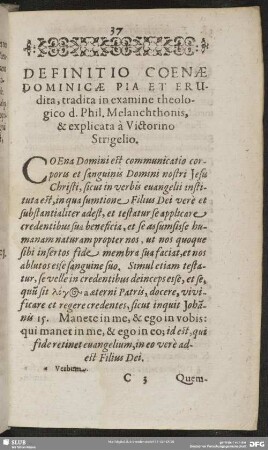 37
DEFINITIO COENÆ
DOMINICÆ PIA ET ERU-
dita, tradita in examine theolo-
gico d. Phil, Melanchthonis,
& explicata à Victorino
Strigelio.
COEna Domini est communicatio cor-
poris et sanguinis Domini nostri Jesu
Christi, sicut in verbis euangelii insti-
tuta est, in qua sumtione Filius Dei verè et
substantialiter adest, et testatur se applicare
credentibus sua beneficia, et se assumsisse hu-
manam naturam propter nos, ut nos quoque
sibi insertos fide membra sua faciat, et nos
ablutos esse sanguine suo. Simul etiam testa-
tur, se velle in credentibus deinceps esse, et se,
quū sit λόγ@ * aeterni Patris, docere, vivi-
ficare et regere credentes, sicut inquit Johā-
nis 15. Manete in me, & ego in vobis:
qui manet in me, & ego in eo; id est, qui
fide retinet euangelium, in eo verè ad-
est Filius Dei.
* Verbum.
C 3 Quem-
SLUB
DFG